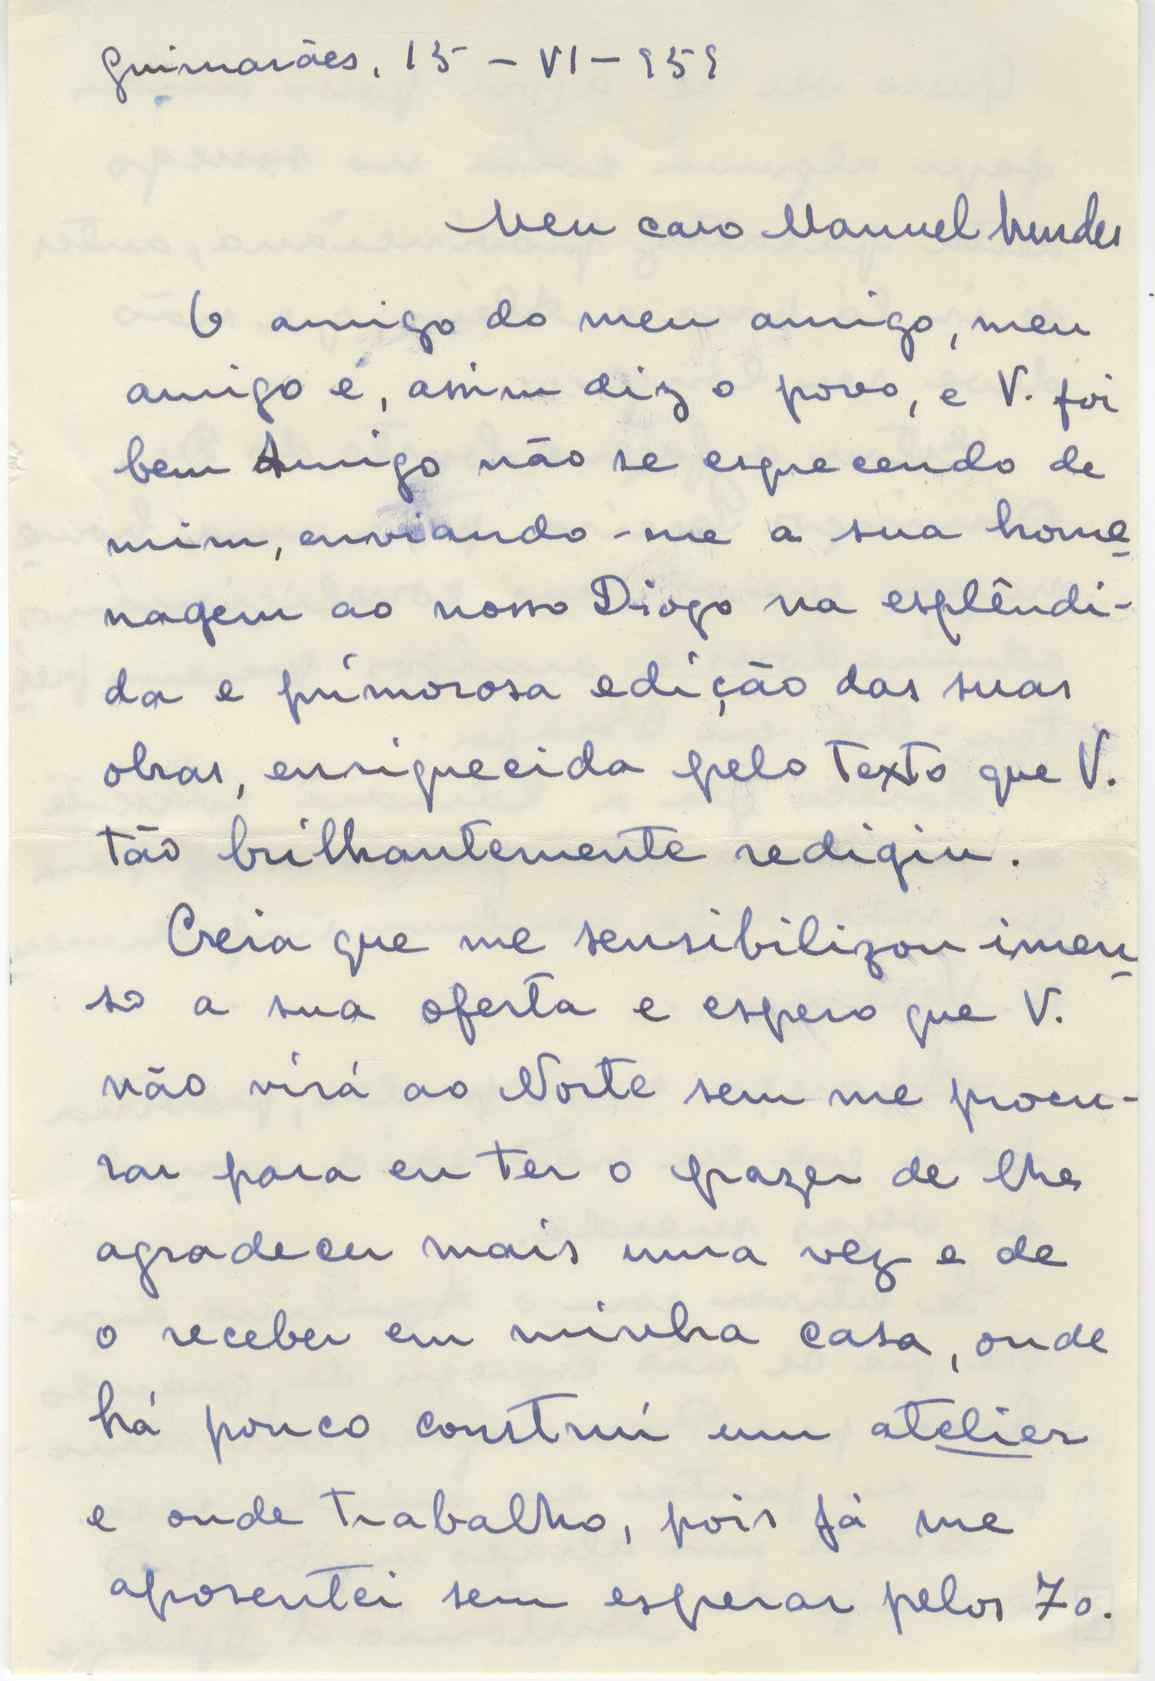 Guimarães, 15 - VI - 959
Meu caro Manuel Mendes
O amigo do meu amigo, meu
amigo é, assim diz o povo, e V. foi
bem Amigo não se esquecendo de
mim, enviando-me a sua home
nagem ao nosso Diogo na esplêndi-
da e primorosa edição das suas
obras, enriquecida pelo texto que V.
tão brilhantemente redigiu.
Creia que me sensibilizou imen
so a sua oferta e espero que V.
não virá ao Norte sem me procu-
rar para eu ter o prazer de lhe
agradecer mais uma vez e de
o receber em minha casa, onde
há pouco construí um atelier
e onde trabalho, pois já me
aposentei sem esperar pelos 70.